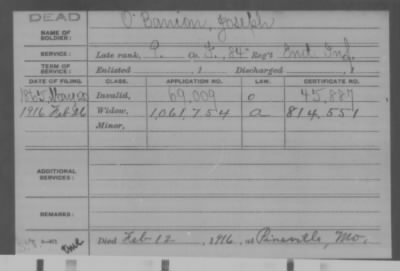 DEAD
NAME OF SOLDIER: O'Bannion, Joseph
SERVICE: Late rank, P. Co. F, 84" Reg't Ind. Inf.
TERM OF SERVICE: Enlisted , 1 Discharged , 1
DATE OF FILING. CLASS. APPLICATION NO. LAW. CERTIFICATE NO.
1865 Invalid, 69,009 o 45,887
1916 Feb 26 Widow, 1,061,754 a 814,551
Minor,
ADDITIONAL SERVICES:
REMARKS:
Died Feb 12, 1916, at Mo.